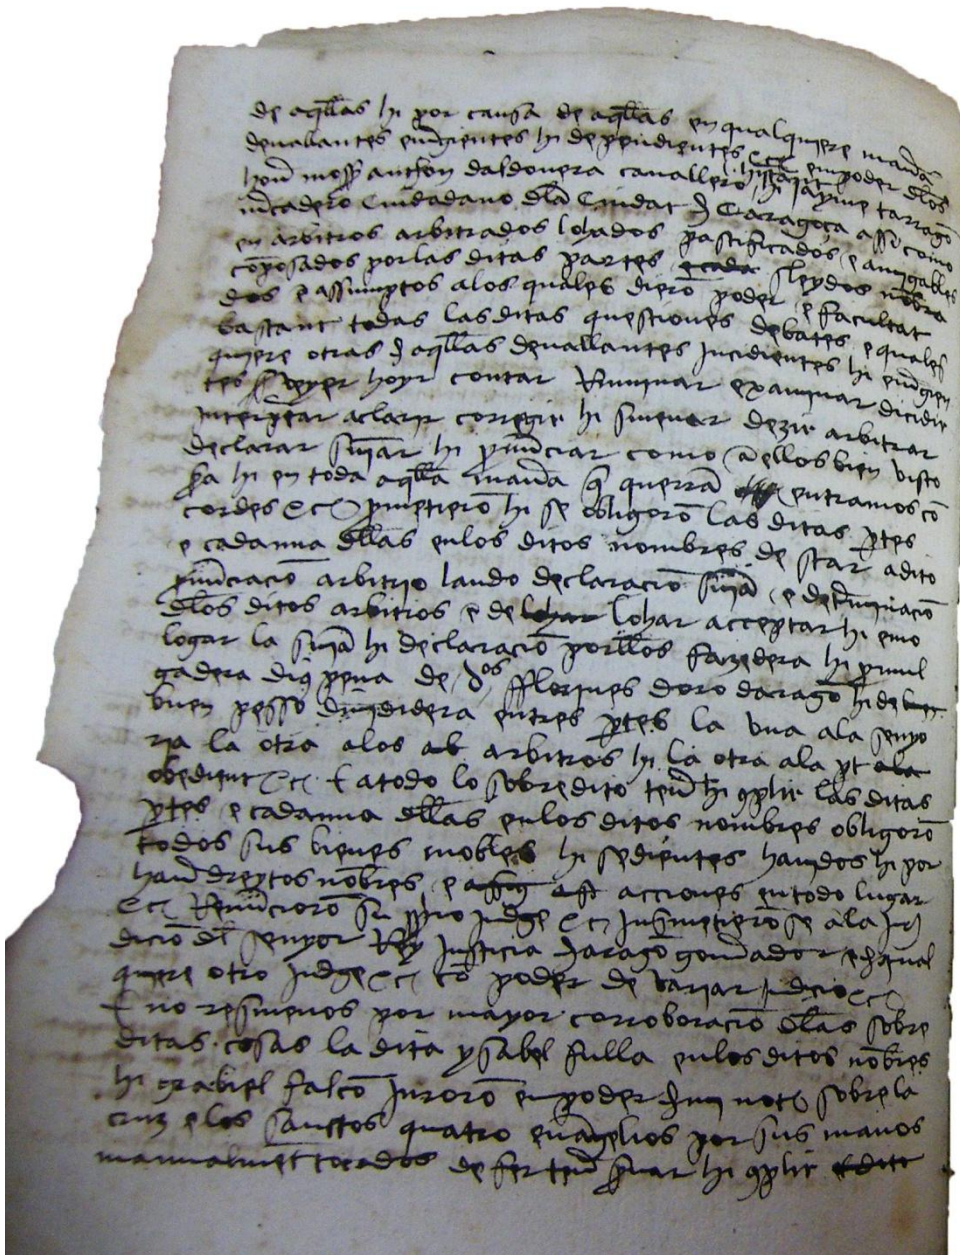 de aqllas hi por causa de aqllas en qualquiere man̄a
devallantes emgientes hi dependientes &c̃ en poder dlos
hon̄ mossẽ anthon daldovera cavallero hi jayme tarragõ
mcadero Ciudadano dla Ciudat d̃ Caragoça assi como
en arbitros arbitrados lohados pacificados e amigables
cõposados por las ditas partes sleydos nõbra
dos e assumptos a los quales dierõ poder e facultat
bastant todas las ditas questiones debates e quales
quiere otras d̃ aqllas devallantes incidientes hi emgien
tes veyer hoyr contar Ruminar examinar dicidir
interptar aclarir corregir hi smenar dezir arbitrar
declarar snĩar hi pnũciar como ã ellos bien visto
sra hi en toda aqlla man̄a q̃ querrã entramos cõ
cordes &c̃ pmetierõ hi se obligorõ las ditas ptes
e cadauna dllas en los ditos nombres de star a dito
pnũciaciõ arbitrio laudo declaraciõ snĩa e detminaciõ
dlos ditos arbitros e de lohar acceptar hi emo
logar la snĩa hi declaraciõ por llos fazedera hi pmul
gadera dius pena de fflorines doro daragõ hi de
buen pesso divididera en tres ptes la una a la senyo
ria la otra a los arbitros hi la otra a la pt
obedient &c̃ E a todo lo sobredito ten̄ hi 9plir las ditas
ptes e cadauna dllas en los ditos nombres obligorõ
todos sus bienes mobles hi sedientes havidos hi por
hav̄ dreytos nõbres e acciones en todo lugar
&c̃ Renũciorõ su pprio judge &c̃ jusmetierõ se a la jur̃
diciõ dl senyor Rey justicia daragõ gov̄nador e d̃ qual
quiere otro judge &c̃ cõ poder de variar judicio &c̃
E no resmenos por mayor corroboraciõ dllas sobre
ditas cosas la dita ysabel fulla en los ditos nõbres
hi grabiel falcõ jurorõ en poder d̃ mj not̃ sobre la
cruz e los sanctos quatro evãgelios por sus manos
manualment tocados de fer ten̄ svar hi 9plir